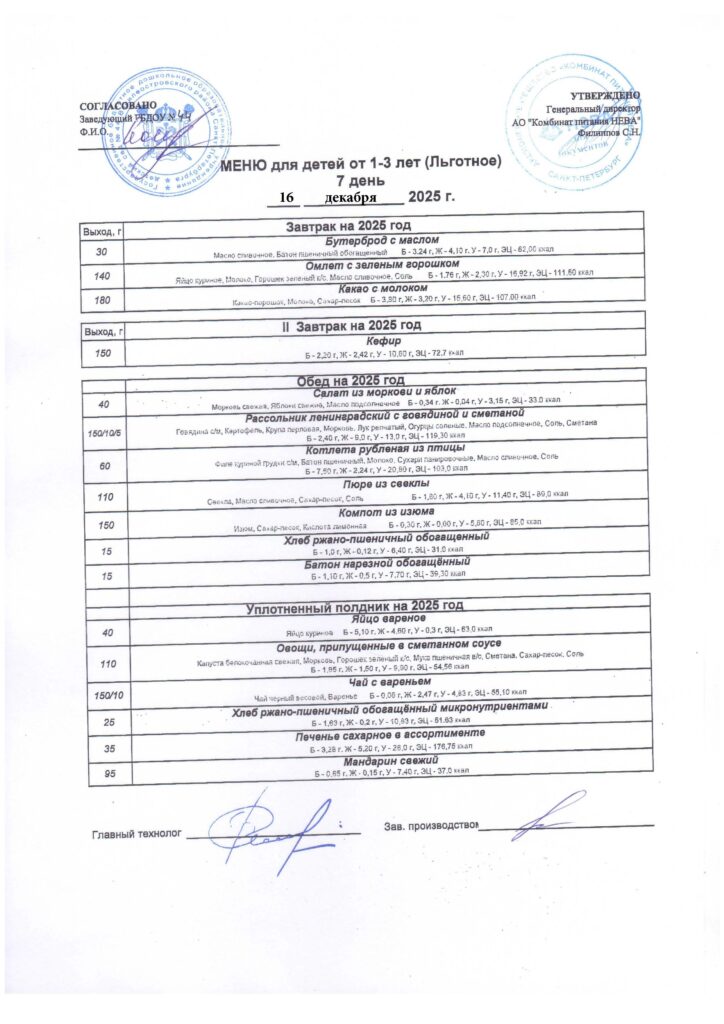 СОГЛАСОВАНО
Заведующий ГБДОУ № 44
Ф.И.О.
УТВЕРЖДЕНО
Генеральный директор
АО "Комбинат питания НЕВА"
Филиппов С.Н.
МЕНЮ для детей от 1-3 лет (Льготное)
7 день
16 декабря 2025 г.
Выход, г Завтрак на 2025 год
Бутерброд с маслом
30 Масло сливочное, Батон пшеничный обогащенный Б - 3,24 г, Ж - 4,10 г, У - 7,0 г, ЭЦ - 62,00 ккал
Омлет с зеленым горошком
140 Яйцо куриное, Молоко, Горошек зеленый к/с, Масло сливочное, Соль Б - 1,76 г, Ж - 2,30 г, У - 16,92 г, ЭЦ - 111,60 ккал
Какао с молоком
180 Какао-порошок, Молоко, Сахар-песок Б - 3,80 г, Ж - 3,20 г, У - 15,60 г, ЭЦ - 107,00 ккал
Выход, г II Завтрак на 2025 год
Кефир
150 Б - 2,20 г, Ж - 2,42 г, У - 10,60 г, ЭЦ - 72,7 ккал
Обед на 2025 год
Салат из моркови и яблок
40 Морковь свежая, Яблоки свежие, Масло подсолнечное Б - 0,34 г, Ж - 0,04 г, У - 3,15 г, ЭЦ - 33,0 ккал
Рассольник ленинградский с говядиной и сметаной
150/10/5 Говядина с/м, Картофель, Крупа перловая, Морковь, Лук репчатый, Огурцы соленые, Масло подсолнечное, Соль, Сметана
Б - 2,40 г, Ж - 9,0 г, У - 13,0 г, ЭЦ - 119,30 ккал
Котлета рубленая из птицы
60 Филе куриной грудки с/м, Батон пшеничный, Молоко, Сухари панировочные, Масло сливочное, Соль
Б - 7,50 г, Ж - 2,24 г, У - 20,60 г, ЭЦ - 103,0 ккал
Пюре из свеклы
110 Свекла, Масло сливочное, Сахар-песок, Соль Б - 1,60 г, Ж - 4,10 г, У - 11,40 г, ЭЦ - 89,0 ккал
Компот из изюма
150 Изюм, Сахар-песок, Кислота лимонная Б - 0,30 г, Ж - 0,00 г, У - 5,60 г, ЭЦ - 65,0 ккал
Хлеб ржано-пшеничный обогащенный
15 Б - 1,0 г, Ж - 0,12 г, У - 6,40 г, ЭЦ - 31,0 ккал
Батон нарезной обогащённый
15 Б - 1,10 г, Ж - 0,5 г, У - 7,70 г, ЭЦ - 39,30 ккал
Уплотненный полдник на 2025 год
Яйцо вареное
40 Яйцо куриное Б - 5,10 г, Ж - 4,60 г, У - 0,3 г, ЭЦ - 63,0 ккал
Овощи, припущенные в сметанном соусе
110 Капуста белокочанная свежая, Морковь, Горошек зеленый к/с, Мука пшеничная в/с, Сметана, Сахар-песок, Соль
Б - 1,95 г, Ж - 1,50 г, У - 9,90 г, ЭЦ - 54,56 ккал
Чай с вареньем
150/10 Чай черный весовой, Варенье Б - 0,06 г, Ж - 2,47 г, У - 4,83 г, ЭЦ - 55,10 ккал
Хлеб ржано-пшеничный обогащённый микронутриентами
25 Б - 1,63 г, Ж - 0,2 г, У - 10,63 г, ЭЦ - 51,63 ккал
Печенье сахарное в ассортименте
35 Б - 3,28 г, Ж - 5,20 г, У - 26,0 г, ЭЦ - 176,75 ккал
Мандарин свежий
95 Б - 0,65 г, Ж - 0,15 г, У - 7,40 г, ЭЦ - 37,0 ккал
Главный технолог Зав. производством